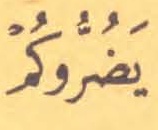 يَضُرُّوكُمْ